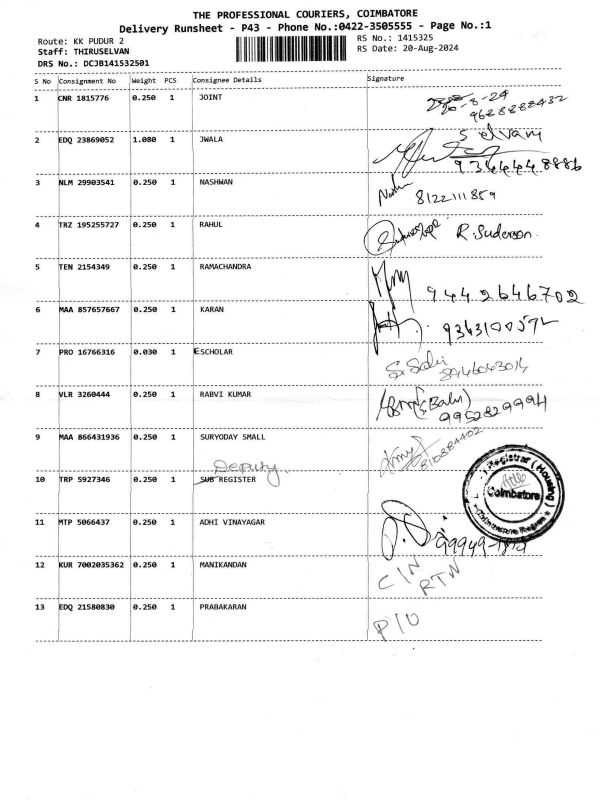 THE PROFESSIONAL COURIERS, COIMBATORE
Delivery Runsheet - P43 - Phone No.:0422-3505555 - Page No.:1
Route: KK PUDUR 2 RS No.: 1415325
Staff: THIRUSELVAN RS Date: 20-Aug-2024
DRS No.: DCJB141532501
S No Consignment No Weight PCS Consignee Details Signature
1 CNR 1815776 0.250 1 JOINT
20-8-24
9628888432
2 EDQ 23869052 1.080 1 JWALA
Selvam
9364448886
3 NLM 29903541 0.250 1 NASHWAN
8122111859
4 TRZ 195255727 0.250 1 RAHUL R. Suderson.
5 TEN 2154349 0.250 1 RAMACHANDRA
9442646702
6 MAA 857657667 0.250 1 KARAN
7 PRO 16766316 0.030 1 ESCHOLAR
8946043014
8 VLR 3260444 0.250 1 RABVI KUMAR
9952829994
9 MAA 866431936 0.250 1 SURYODAY SMALL
Deputy
10 TRP 5927346 0.250 1 SUB REGISTER
Registrar (Housing)
Coimbatore
11 MTP 5066437 0.250 1 ADHI VINAYAGAR
12 KUR 7002035362 0.250 1 MANIKANDAN C/N
RTN
13 EDQ 21580830 0.250 1 PRABAKARAN